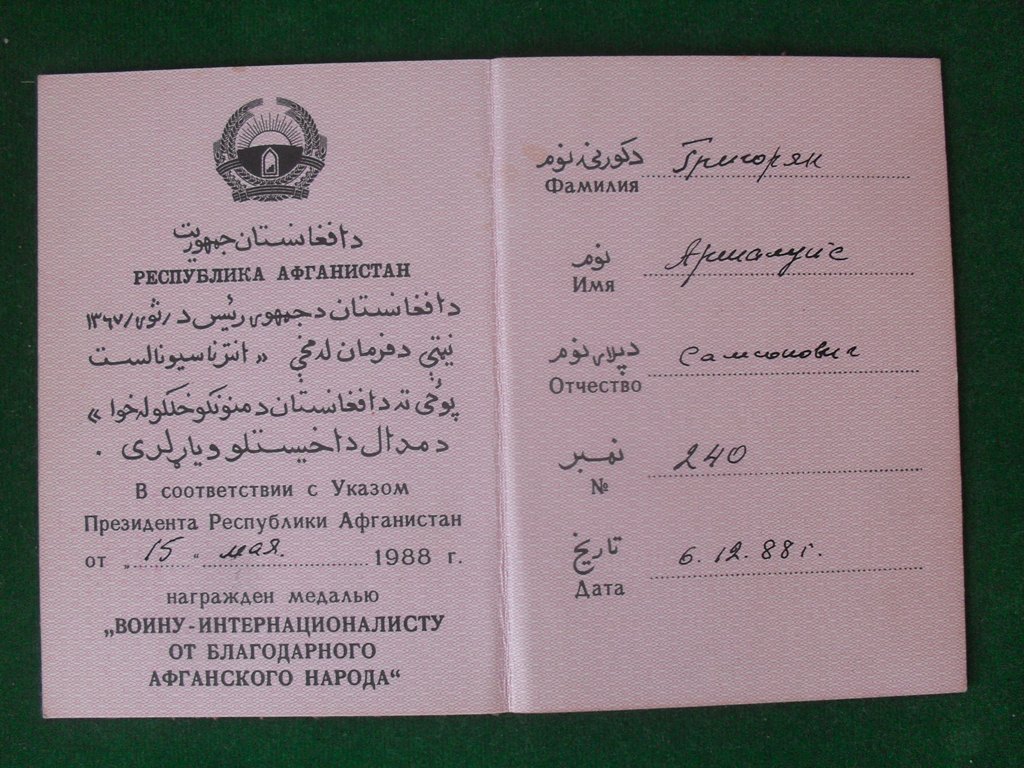 دافغانستان جمهوریت
РЕСПУБЛИКА АФГАНИСТАН
دافغانستان دجمهوری رئیس د /ثور/ ۱۳۶۷
نیټې دفرمان له مخې « انترناسیونالست
پوځی ته دافغانستان دمنونکو خلکو له خوا »
دمدال داخیستلو ویاړلری .
В соответствии с Указом
Президента Республики Афганистан
от „ 15 “ мая. 1988 г.
награжден медалью
„ВОИНУ-ИНТЕРНАЦИОНАЛИСТУ
ОТ БЛАГОДАРНОГО
АФГАНСКОГО НАРОДА“
دکورنۍ نوم
Фамилия Григорян
نوم
Имя Аршалуйс
دپلار نوم
Отчество Самсонович
نمبر
№ 240
تاریخ
Дата 6.12.88 г.